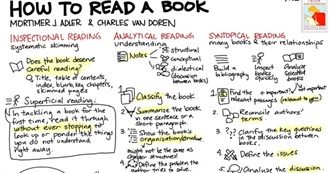 HOW TO READ A BOOK
MORTIMER J ADLER & CHARLES VAN DOREN
INSPECTIONAL READING
systematic skimming
Does the book deserve
careful reading?
Title, table of contents,
index, blurb, key chapters,
skimmed pages
Superficial reading:
In tackling a book for the
first time, read it through
without ever stopping to
look up or ponder the things
you do not understand
right away.
ANALYTICAL READING
understanding
Notes
structural
conceptual
dialectical
(discussion between books)
1 Classify the book
2. Summarize the book
in one sentence or a
short paragraph.
3. Show the book's
organization/structure
might not be the same as
chapter structure!
4. Define the problem the
author tries to solve.
SYNTOPICAL READING
many books & their relationships
Build a
bibliography
Inspect
books
quickly
Analyse
specific
books
1 Find the most
relevant passages
2
3. Clarify the key questions
in the discussion between
books.
4. Define the issues
5. Analyse the discussion.